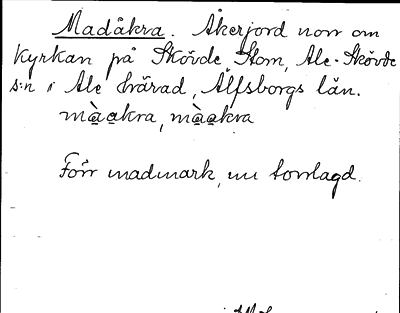 Madåkra. Åkerjord norr om
kyrkan på Skövde Stom, Ale-Skövde
s:n i Ale härad, Älfsborgs län.
mà̱a̱kra, mà̱a̱kra
Förr madmark, nu torrlagd.